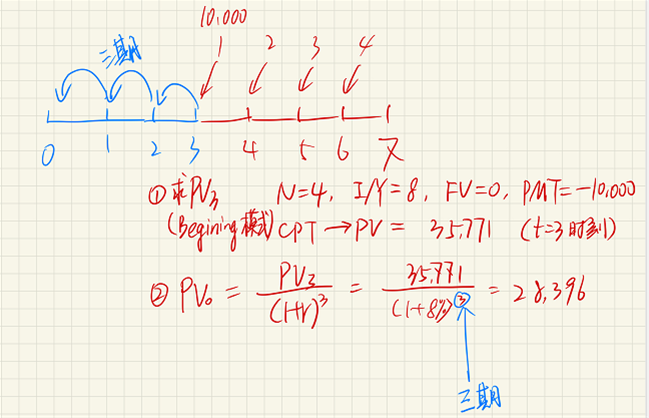 10,000
三期 1 2 3 4
0 1 2 3 4 5 6 7
①求PV₃ N=4, I/Y=8, FV=0, PMT=-10,000
(Begining模式) CPT→PV= 35,771 (t=3时刻)
②PV₀ = PV₃/(1+r)³ = 35,771/(1+8%)³ = 28,396
三期